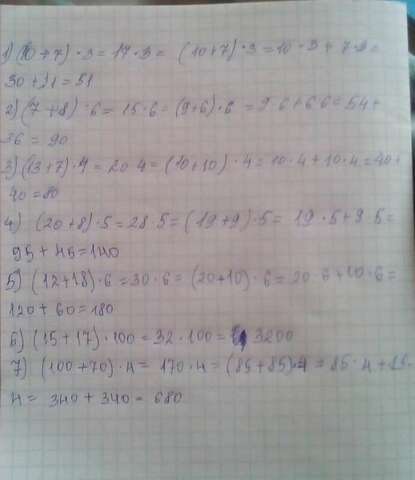 1) (10+7)·3=17·3= (10+7)·3=10·3+7·3=
30+21=51
2) (7+8)·6=15·6=(9+6)·6=9·6+6·6=54+
36=90
3) (13+7)·4=20·4=(10+10)·4=10·4+10·4=40+
40=80
4) (20+8)·5=28·5=(19+9)·5=19·5+9·5=
95+45=140
5) (12+18)·6=30·6=(20+10)·6=20·6+10·6=
120+60=180
6) (15+17)·100=32·100= 3200
7) (100+70)·4=170·4=(85+85)·4=85·4+85·
4= 340+340= 680